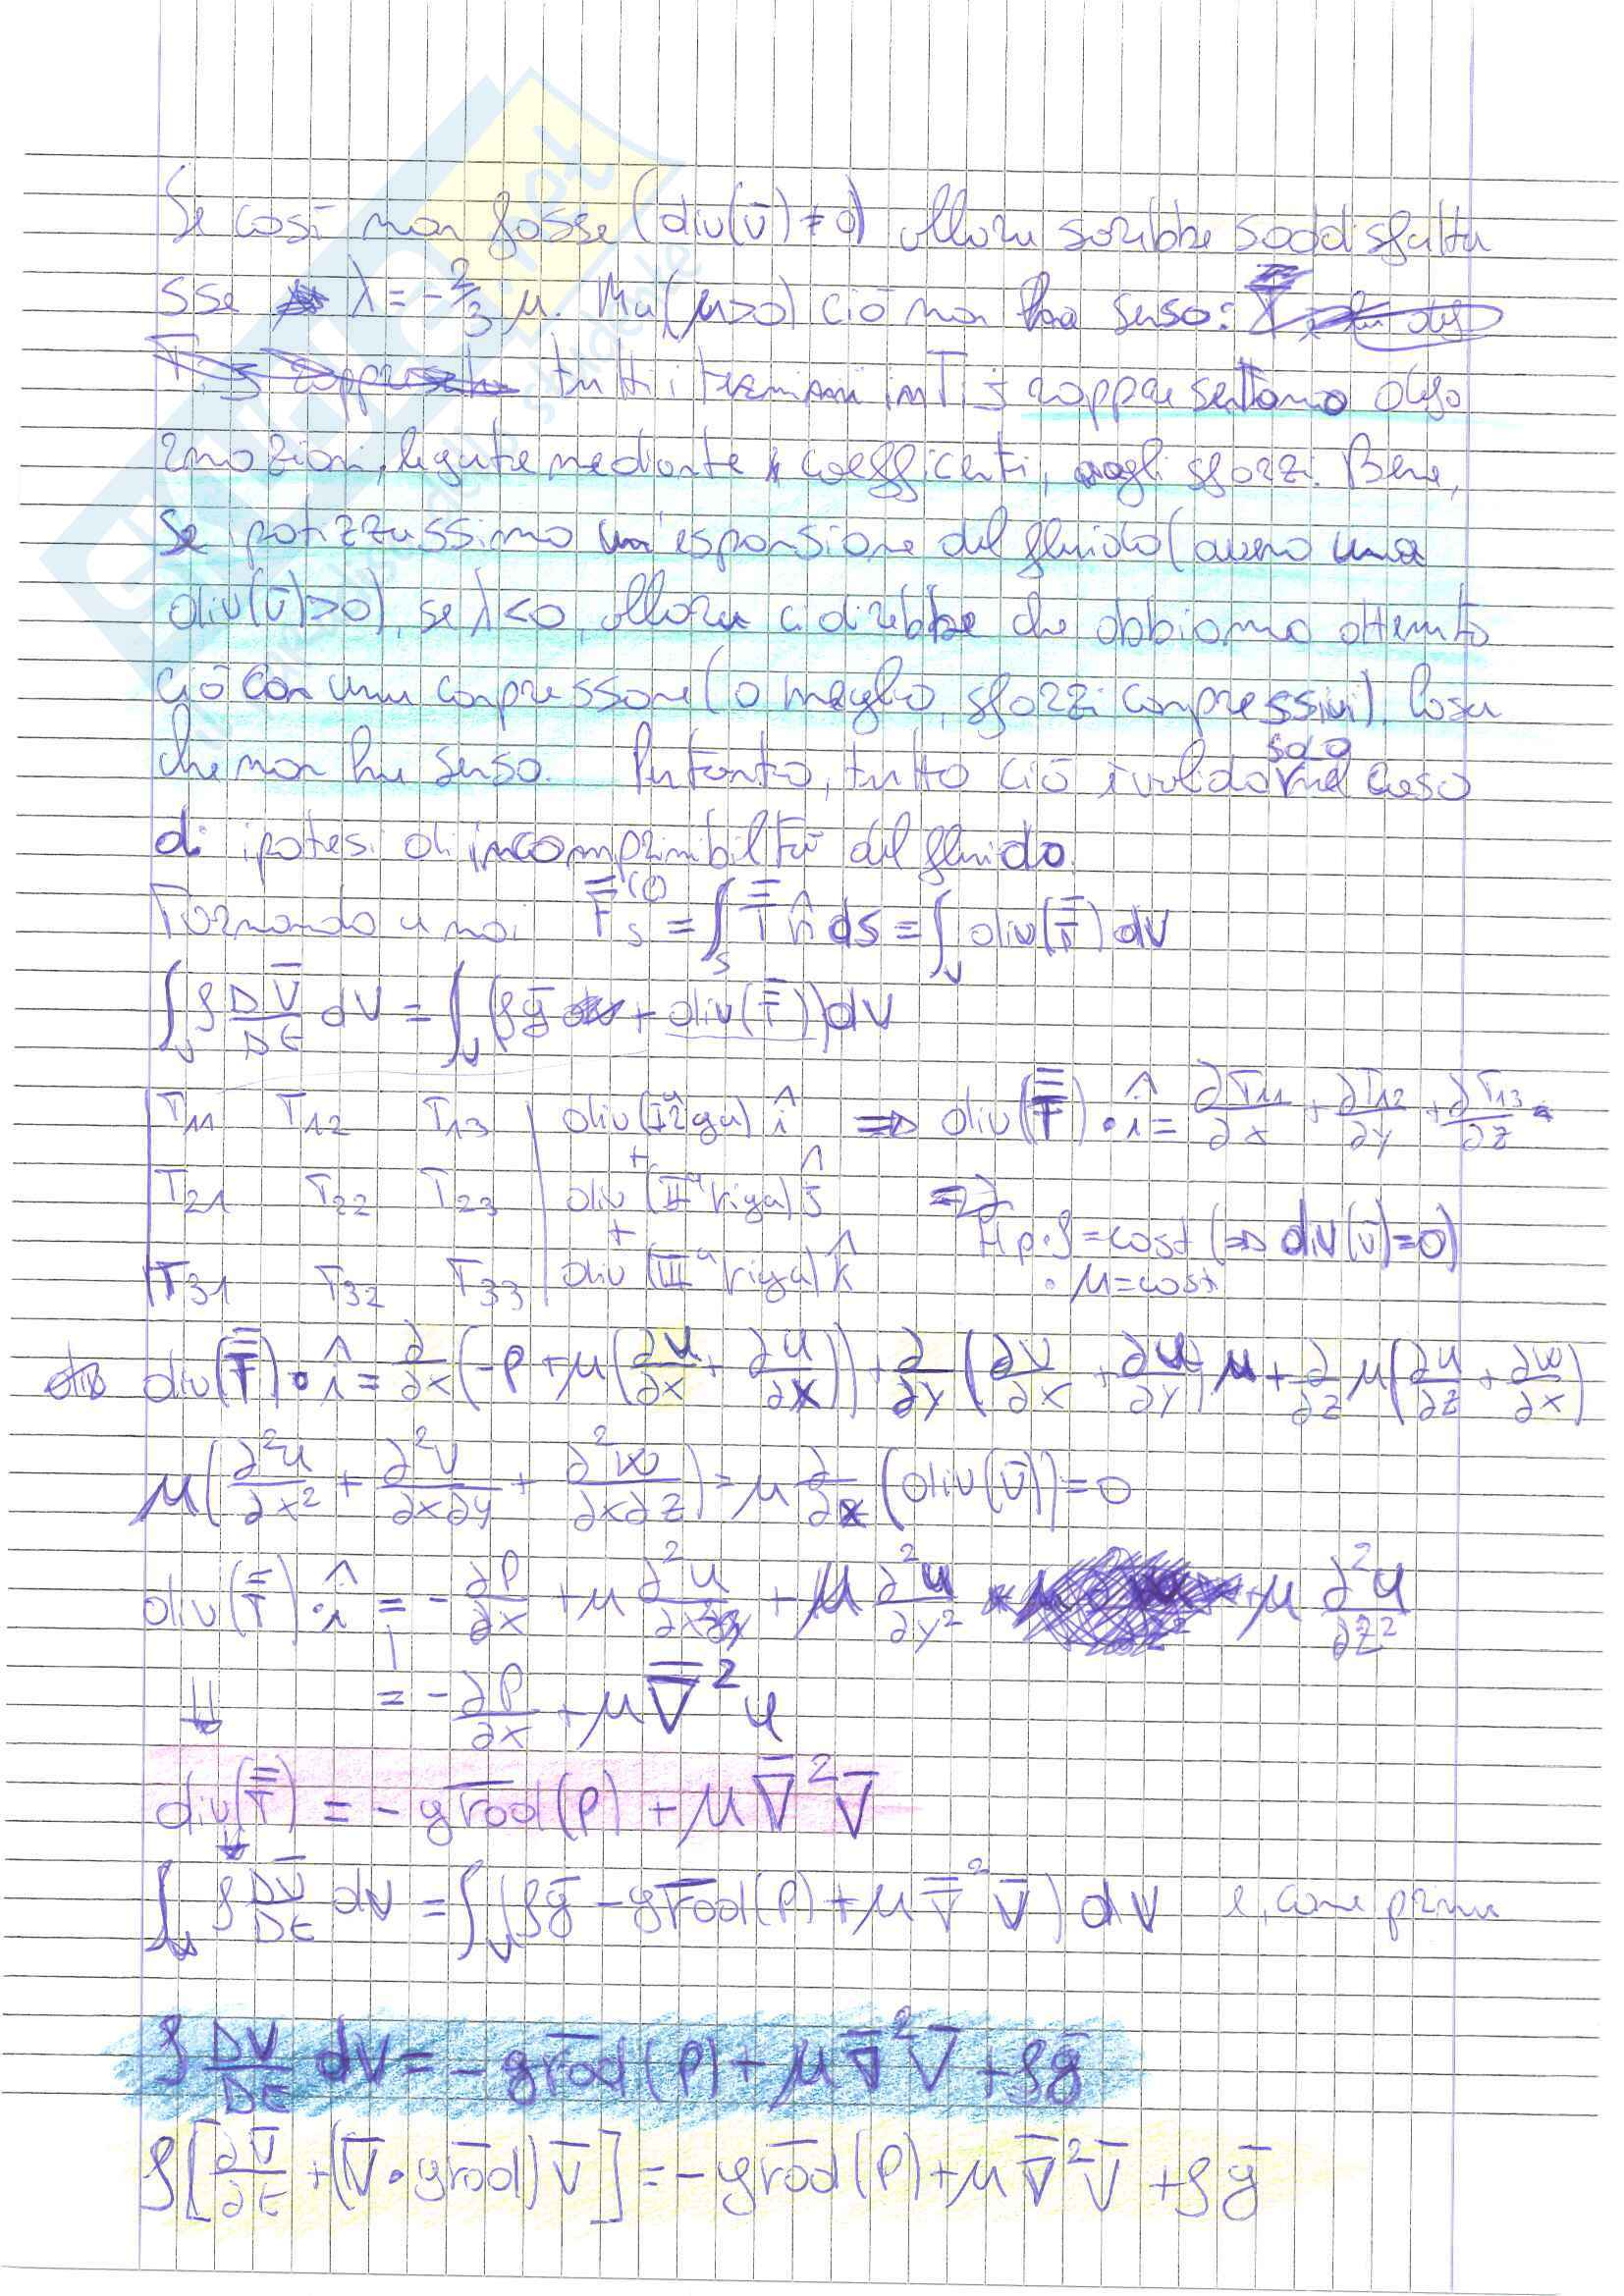 Se così non fosse (div(v̄) ≠ 0) allora sarebbe soddisfatta
sse λ = -2/3 μ. Ma (μ>0) ciò non ha senso:
tutti i termini in Tij rappresentano defo
rmazioni, legate mediante coefficienti, agli sforzi. Bene,
se ipotizzassimo un'espansione del fluido (ovvero una
div(v̄)>0), se λ<0, allora ci direbbe che abbiamo ottenuto
ciò con una compressione (o meglio, sforzi compressivi). Cosa
che non ha senso. Pertanto, tutto ciò è valido solo nel caso
di ipotesi di incomprimibiltà del fluido.
Tornando a noi F̿s = ∫s T̿ n̂ ds = ∫v div(T̿) dV
∫v ρ Dv̄/Dt dV = ∫v (ρḡ + div(T̿)) dV
T11 T12 T13 div(Iª riga) î ⇒ div(T̿)·î = ∂T11/∂x + ∂T12/∂y + ∂T13/∂z =
+
T21 T22 T23 div(IIª riga) ĵ ⇒
+ Hp·ρ = cost (⇒ div(v̄)=0)
T31 T32 T33 div(IIIª riga) k̂ · μ = cost
div(T̿)·î = ∂/∂x (-P + μ(∂u/∂x + ∂u/∂x)) + ∂/∂y (∂v/∂x + ∂u/∂y) μ + ∂/∂z μ(∂u/∂z + ∂w/∂x)
μ(∂²u/∂x² + ∂²v/∂x∂y + ∂²w/∂x∂z) = μ ∂/∂x (div(v̄)) = 0
div(T̿)·î = -∂P/∂x + μ ∂²u/∂x² + μ ∂²u/∂y² + μ ∂²u/∂z²
⇓ = -∂P/∂x + μ∇̄²u
div(T̿) = -grad(P) + μ∇̄²V̄
↓
∫v ρ DV̄/Dt dV = ∫v (ρḡ - grad(P) + μ∇̄²V̄) dV e, come prima
ρ DV/Dt dV = -grad(P) + μ∇̄²V̄ + ρḡ
ρ[∂V̄/∂t + (V̄·grad)V̄] = -grad(P) + μ∇̄²V̄ + ρḡ